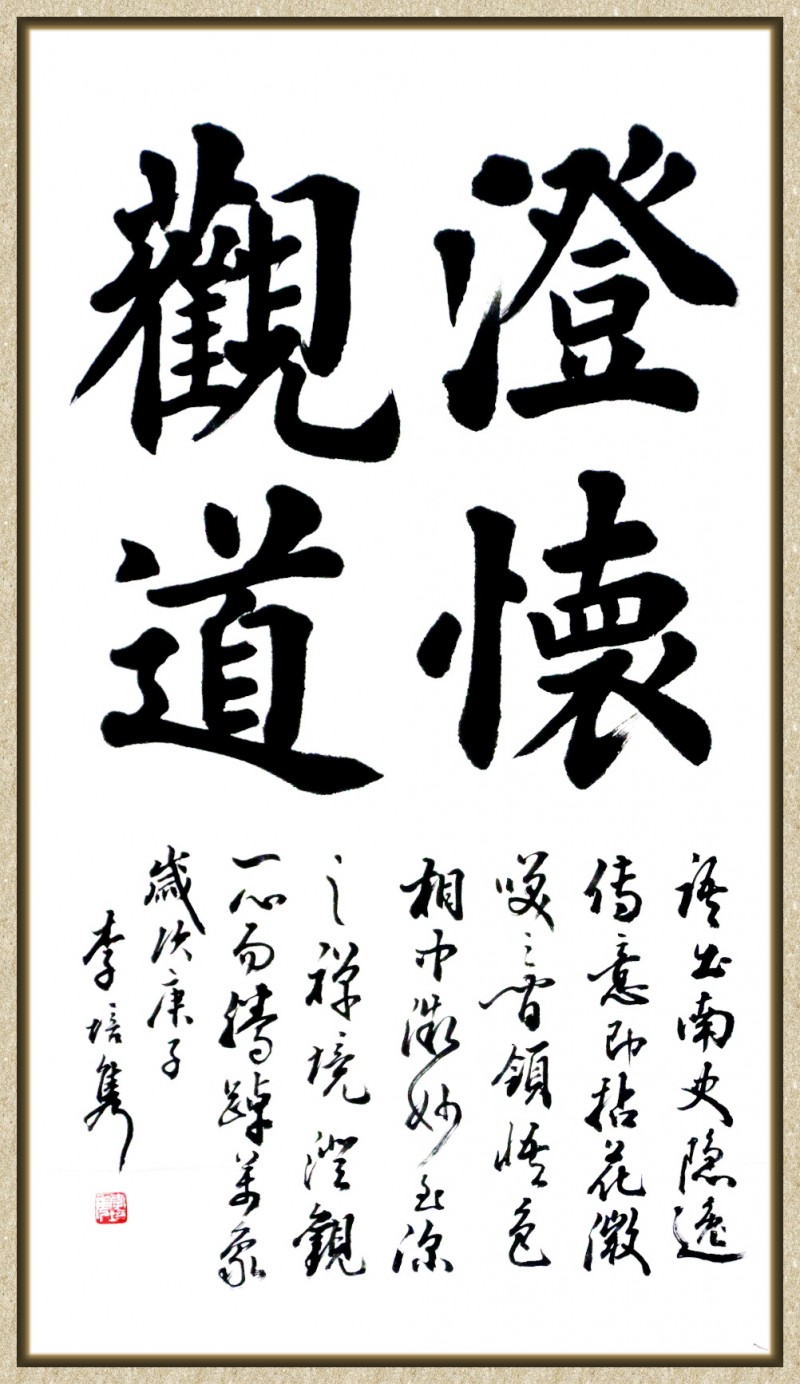 澄懷
觀道
語出南史隐逸
傳意即拈花微
咲之間領悟色
相中微妙至深
之禅境澄觀
一心而騰踔萬象
歲次庚子
李培隽